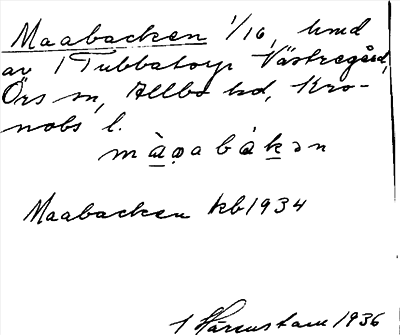 Maabacken 1/16, hmd
av 1 Tubbatorp Västregård,
Örs sn, Allbo hd, Kro-
nobs l.
màọabákən
Maabacken kb 1934
1936